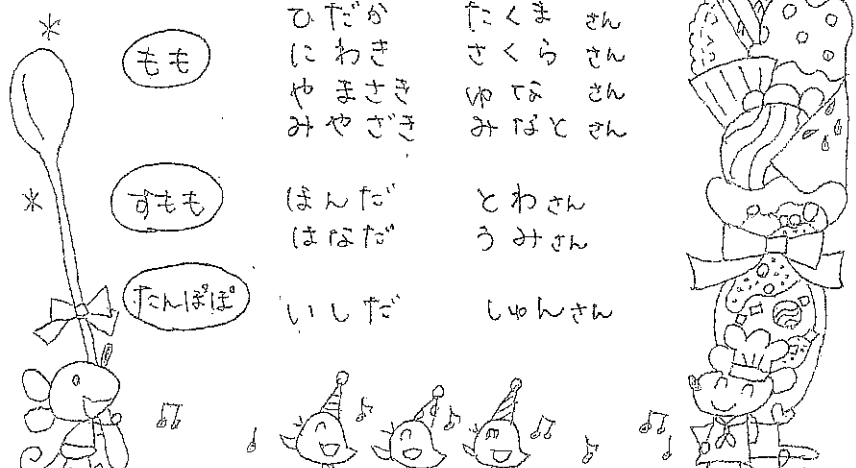 ひだか たくま さん
もも にわき さくら さん
やまさき ゆな さん
みやざき みなと さん
すもも ほんだ とわさん
はなだ うみさん
たんぽぽ いしだ しゅんさん